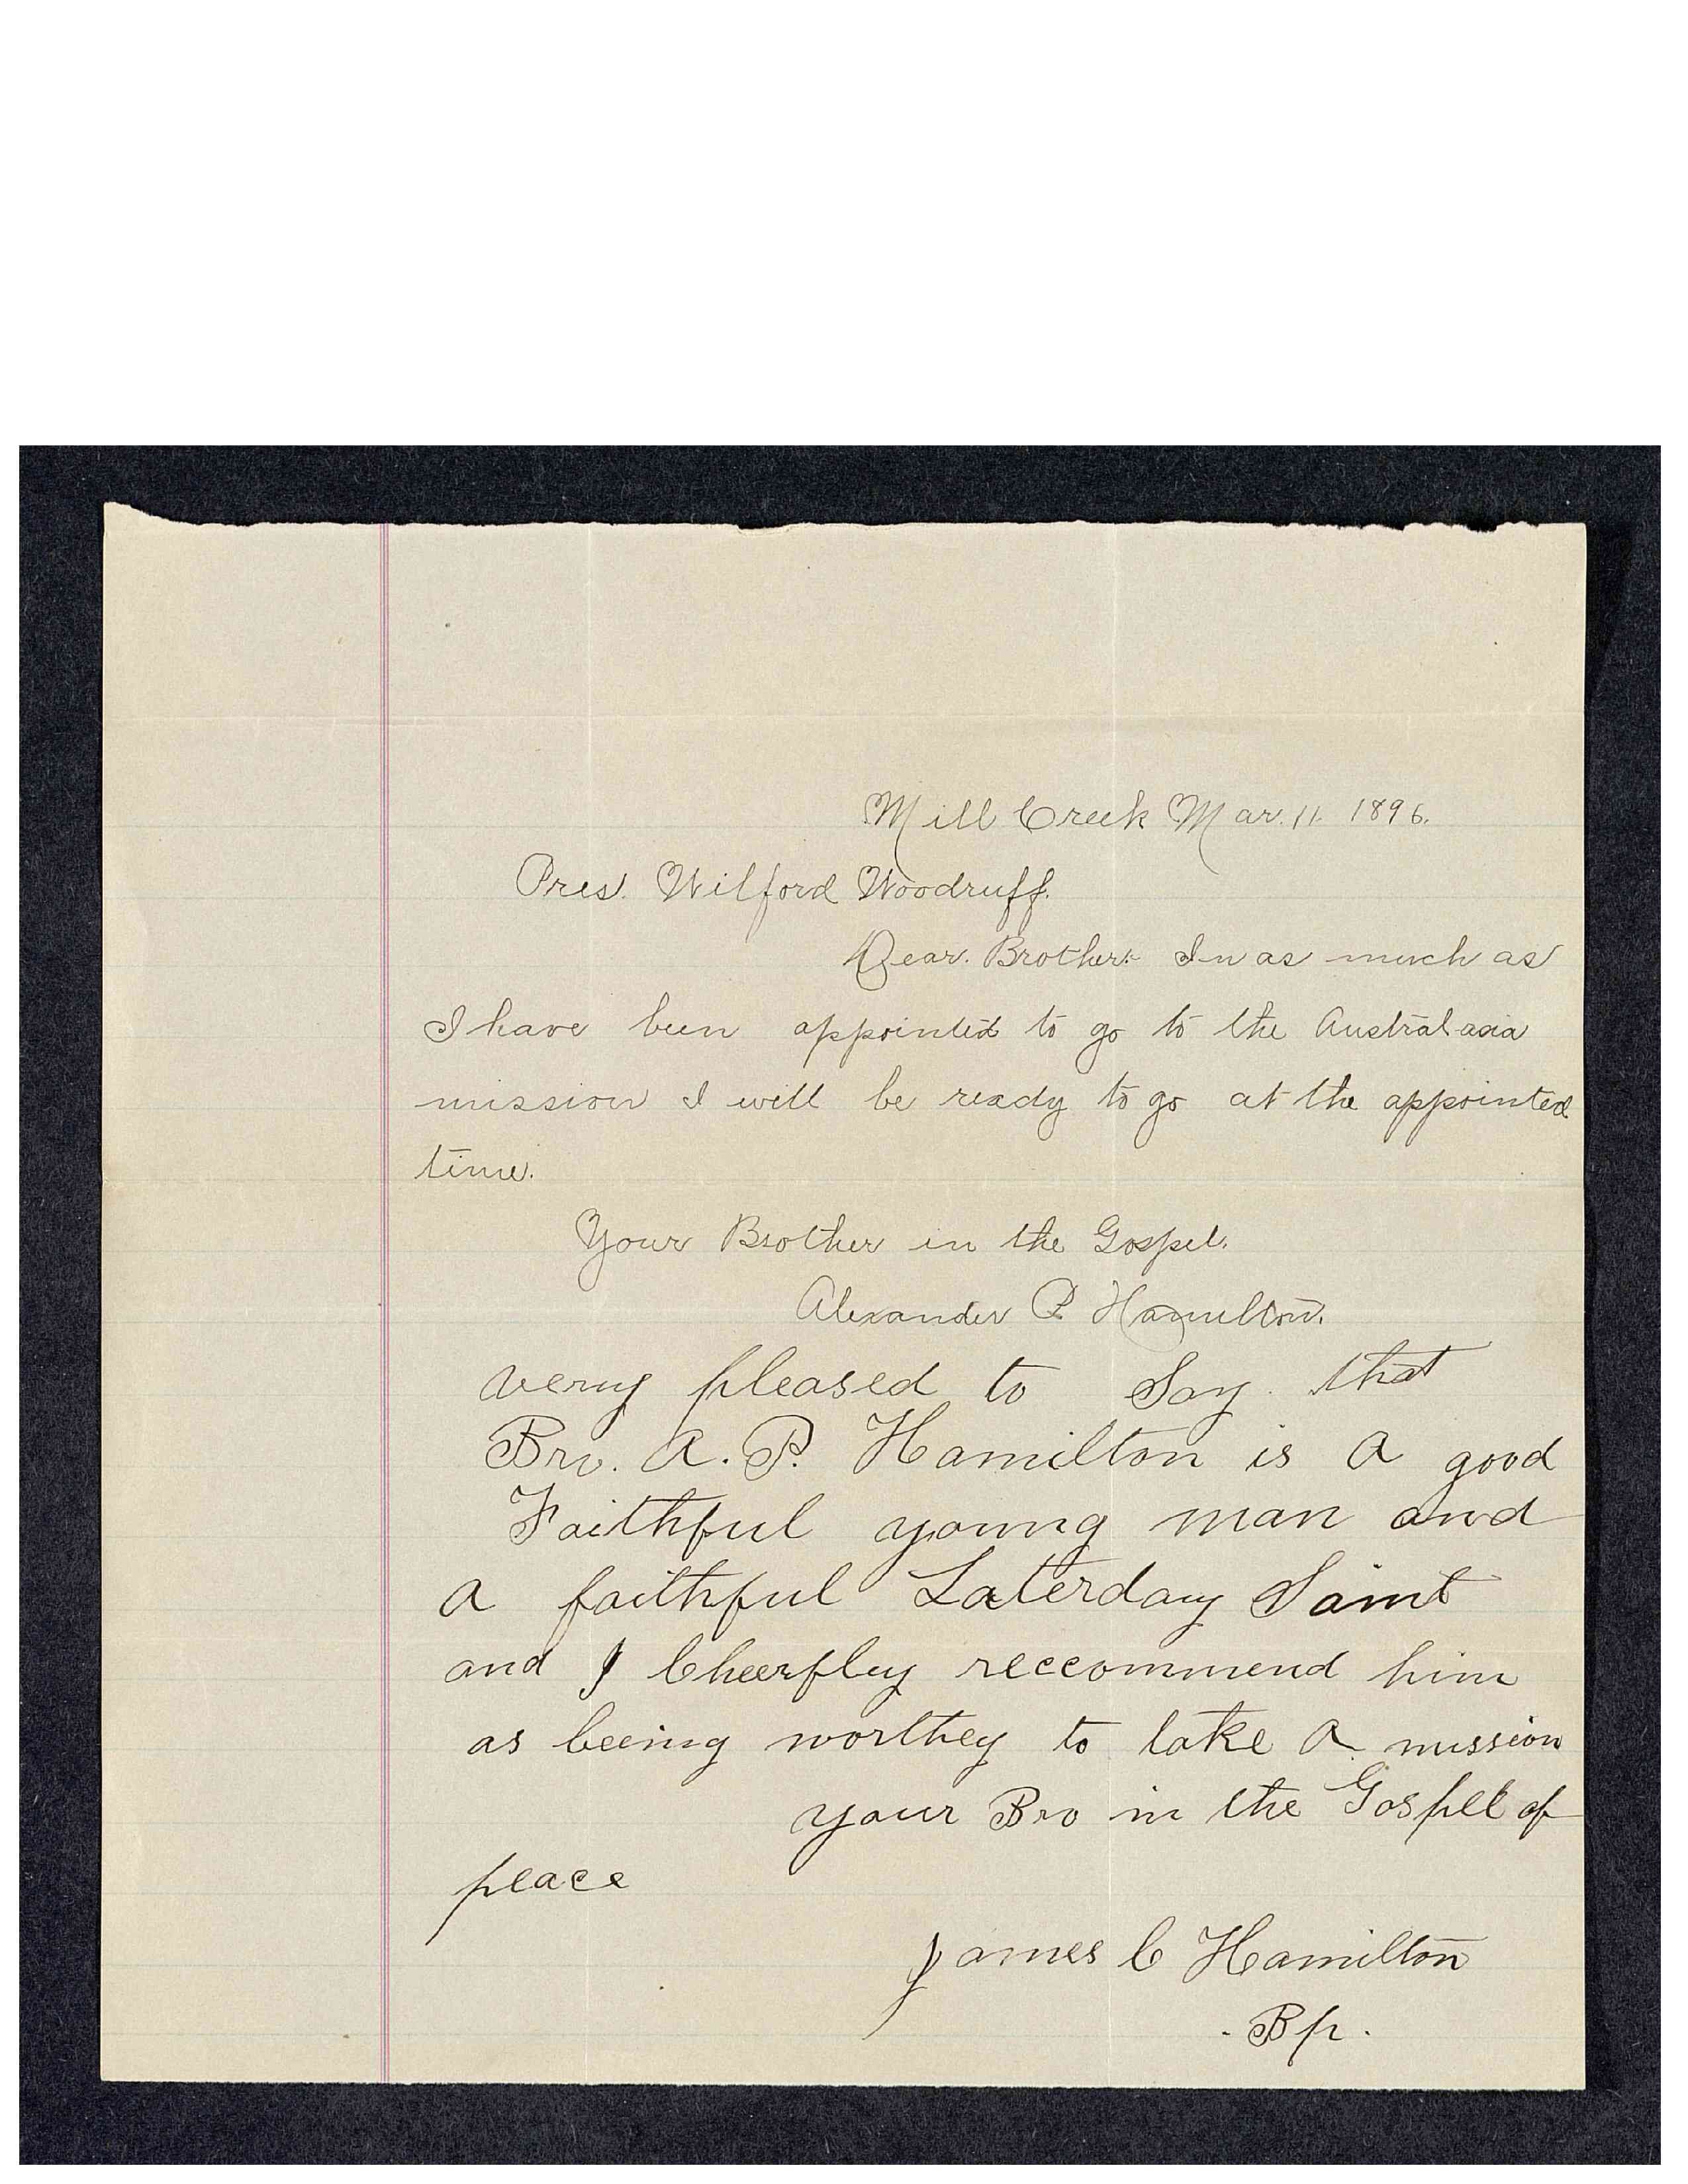 Mill Creek Mar. 11. 1896.
Pres. Wilford Woodruff.
Dear. Brother:- In as much as
I have been appointed to go to the Austral-asia
mission I will be ready to go at the appointed
time.
Your Brother in the Gospel.
Alexander P Hamilton.
very pleased to Say that
Bro. A. P. Hamilton is A good
Faithful young man and
A faithful Laterday Saint
and I Cheerfley reccommend him
as beeing worthey to take A mission
your Bro in the Gospel of
peace
James C Hamilton
. Bp .